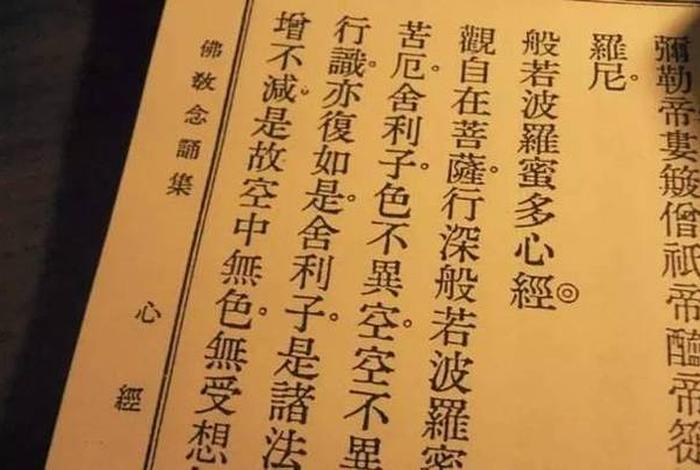 彌勒帝婁簸僧祇帝醯帝簁
羅尼。
般若波羅蜜多心經◎
觀自在菩薩。行深般若波羅蜜
苦厄。舍利子。色不異空。空不異
行識。亦復如是。舍利子。是諸法
增不減。是故空中無色。無受想
佛敎念誦集
心經